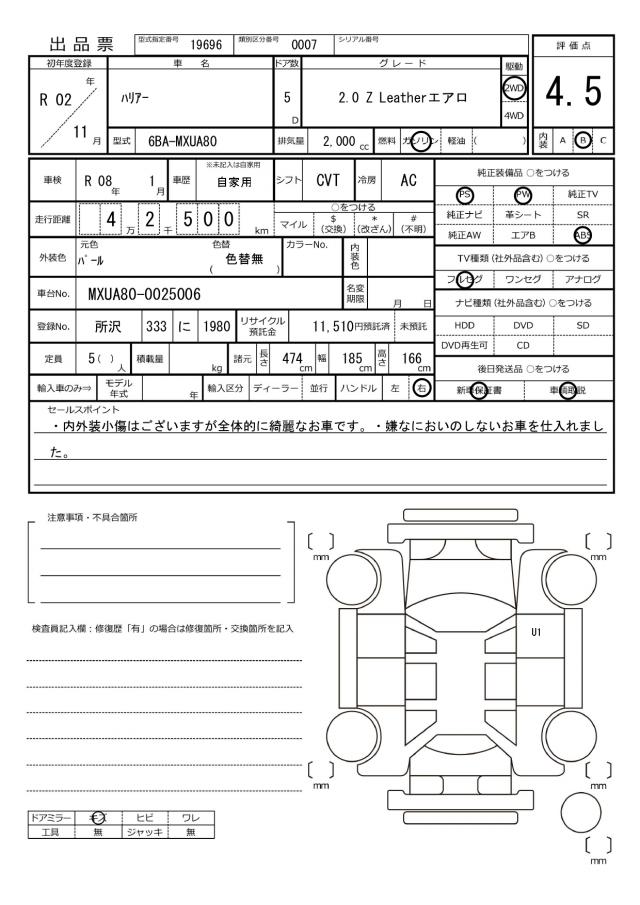 出品票 型式指定番号 19696 類別区分番号 0007 シリアル番号
評価点
4.5
内装 A B C
初年度登録 車 名 ドア数 グレード 駆動
R 02 年 11 月 ﾊﾘｱｰ 5 D 2.0 Z Leatherエアロ 2WD 4WD
型式 6BA-MXUA80 排気量 2,000 cc 燃料 ガソリン 軽油 ( )
車検 R 08 年 1 月 車歴 ※未記入は自家用 自家用 シフト CVT 冷房 AC
走行距離 4 万 2 千 5 0 0 km
○をつける
マイル $ (交換) * (改ざん) # (不明)
外装色 元色 ﾊﾟｰﾙ 色替 ( 色替無 ) カラーNo. 内装色
車台No. MXUA80-0025006 名変期限 月 日
登録No. 所沢 333 に 1980 リサイクル預託金 11,510円預託済 未預託
定員 5( ) 人 積載量 kg 諸元 長さ 474 cm 幅 185 cm 高さ 166 cm
輸入車のみ⇒ モデル年式 年 輸入区分 ディーラー 並行 ハンドル 左 右
純正装備品 ○をつける
PS PW 純正TV
純正ナビ 革シート SR
純正AW エアB ABS
TV種類 (社外品含む) ○をつける
フルセグ ワンセグ アナログ
ナビ種類 (社外品含む) ○をつける
HDD DVD SD
DVD再生可 CD
後日発送品 ○をつける
新車保証書 車輌取説
セールスポイント
・内外装小傷はございますが全体的に綺麗なお車です。・嫌なにおいのしないお車を仕入れまし
た。
注意事項・不具合箇所
検査員記入欄：修復歴「有」の場合は修復箇所・交換箇所を記入
〔 〕 mm
〔 〕 mm
U1
〔 〕 mm
〔 〕 mm
〔 〕 mm
ドアミラー キズ ヒビ ワレ
工具 無 ジャッキ 無